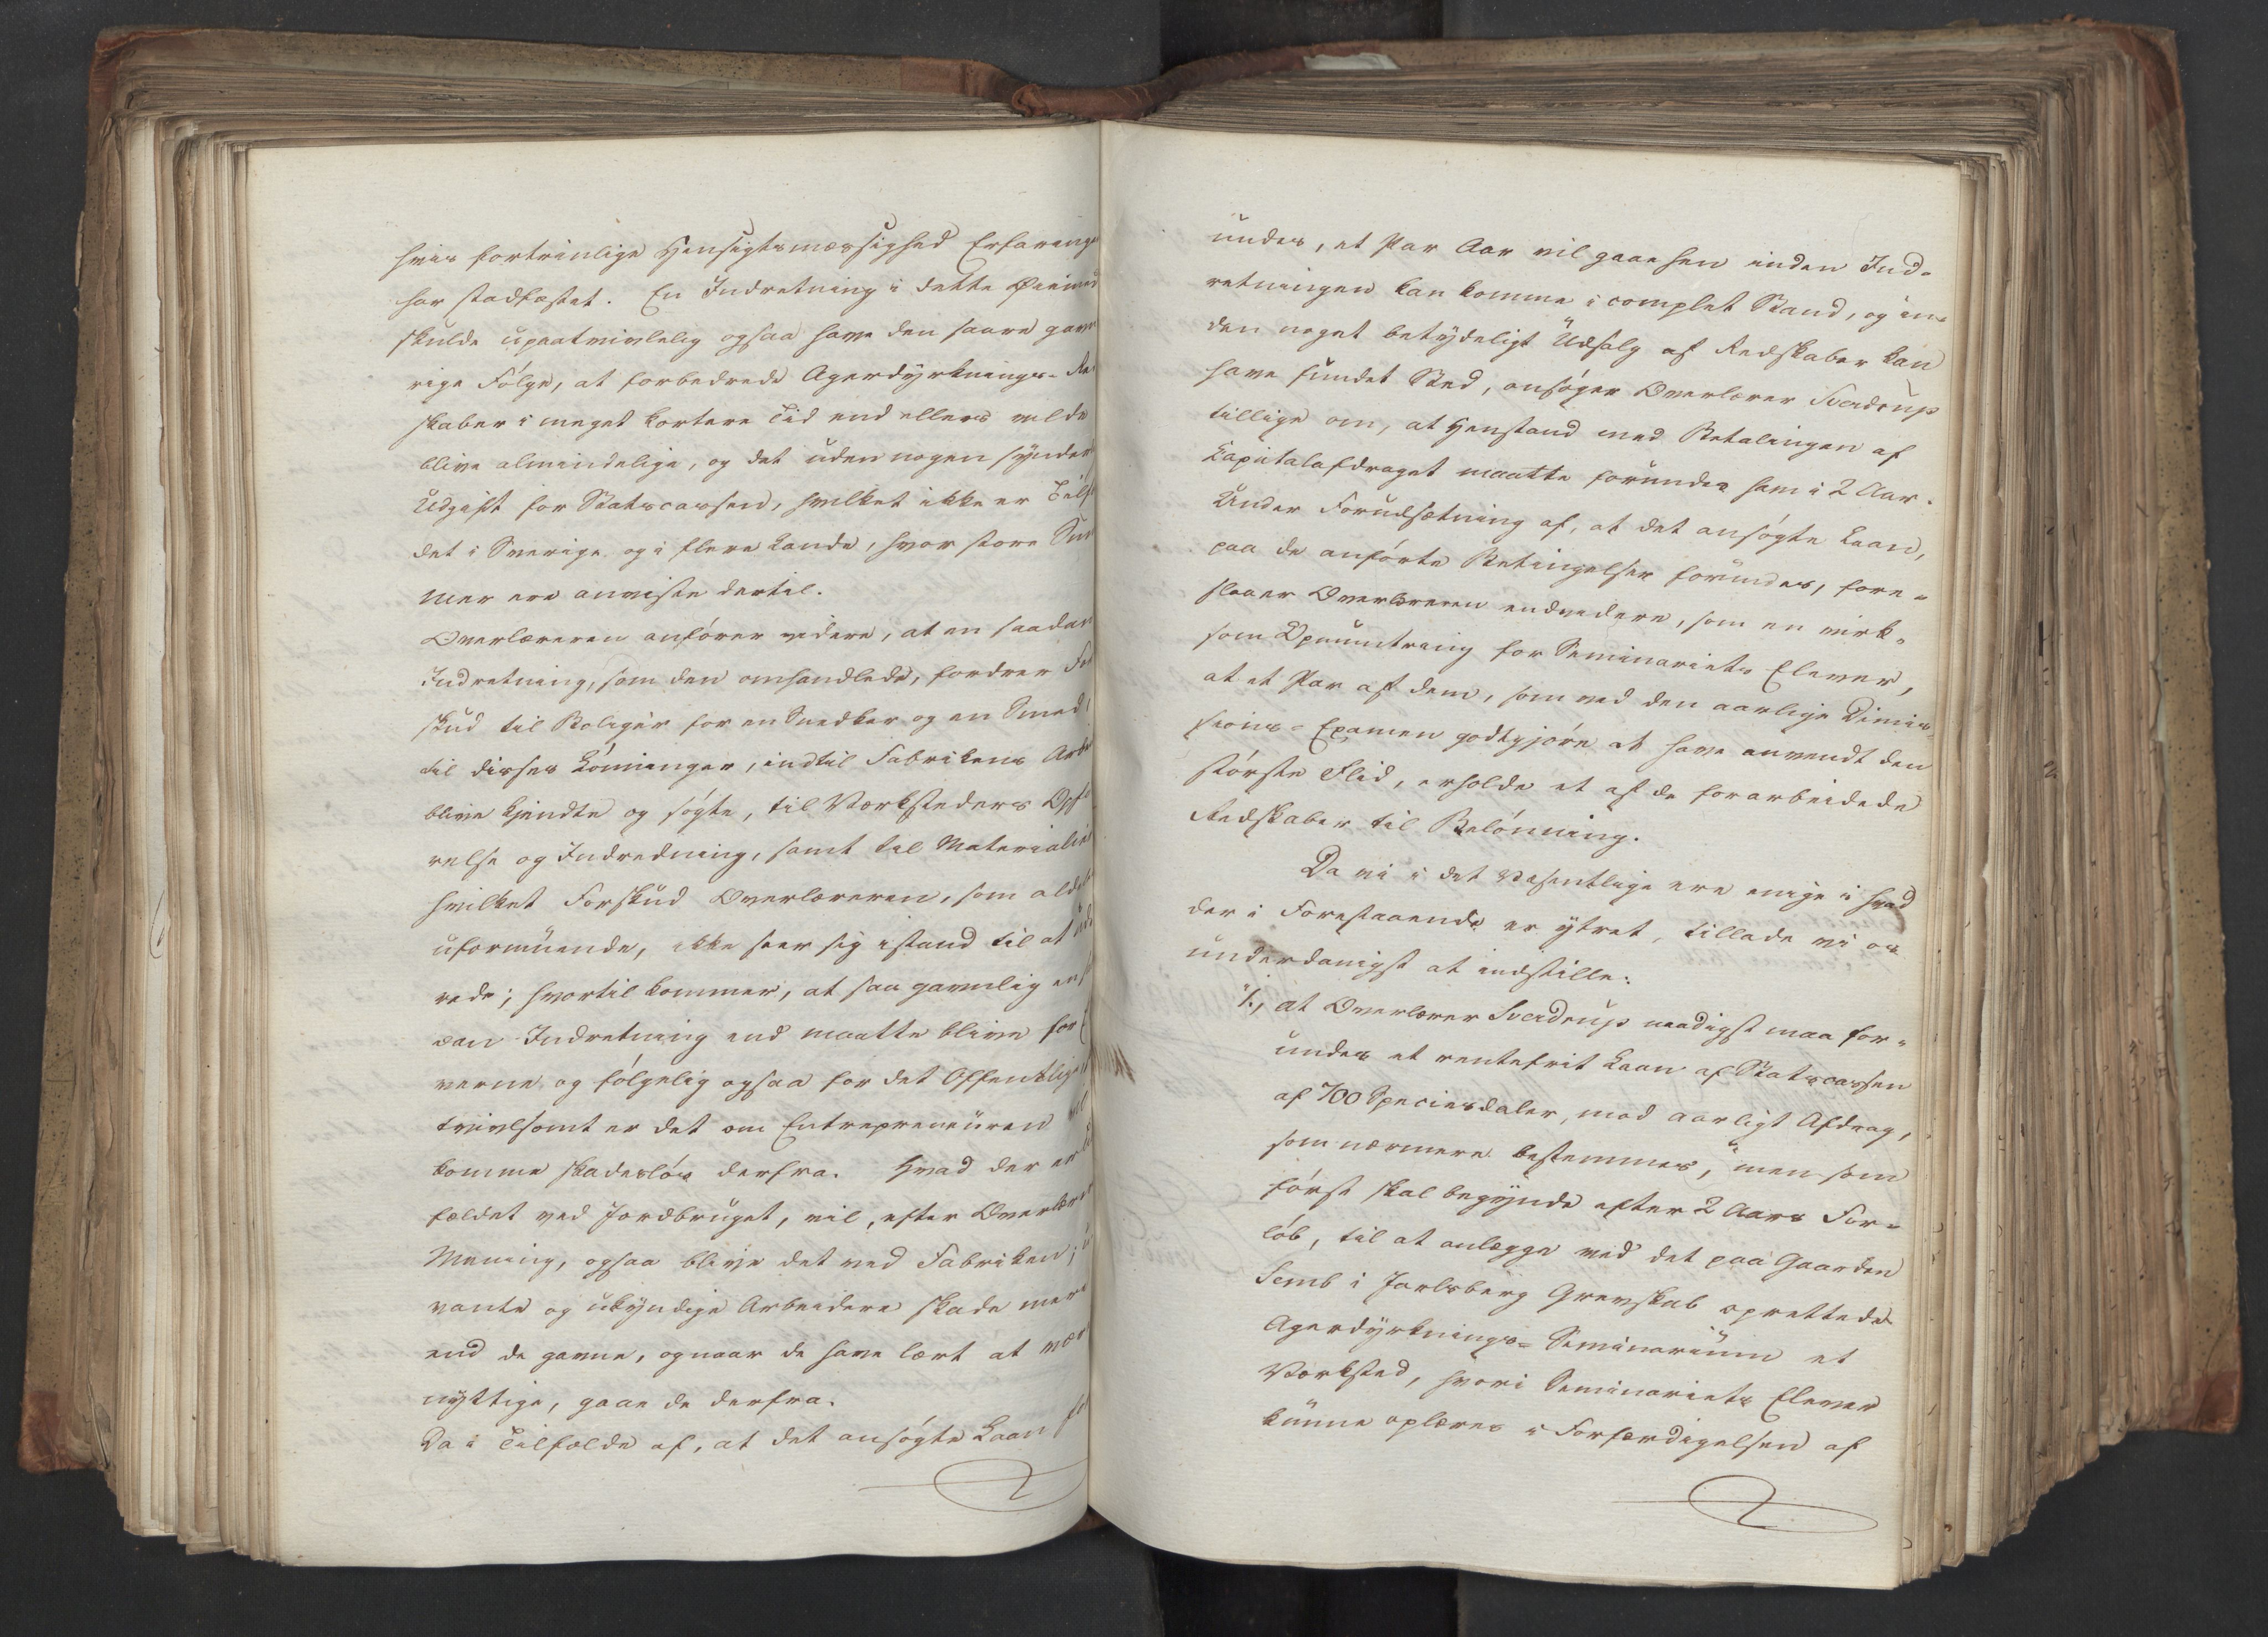 hvis fortrinlige Hensigtsmæssighed Erfaringe
har stadfæstet. En Indretning i dette Øiemed
skulde upaatvivlelig ogsaa have den saare gavn
rige Følge, at forbedrede Agerdyrknings-Re
skaber i meget kortere Tid end ellers vilde
blive almindelige, og det uden nogen synder
Udgift for Statscassen, hvilket ikke er Tilf
det i Sverige og i flere Lande, hvor store Sum
mer ere anviste dertil.
Overlæreren anfører videre, at en saadan
Indretning, som den omhandlede, fordrer For
skud til Boliger for en Snedker og en Smed,
til disses Lønninger, indtil Fabrikens Arbe
blive kjendte og søgte, til Værksteders Opfø
relse og Indredning, samt til Materialier
hvilket Forskud Overlæreren, som aldeles
uformuende, ikke seer sig istand til at ud
rede; hvortil kommer, at saa gavnlig en s
dan Indretning end maatte blive for E
verne og følgelig ogsaa for det Offentlige
tvivlsomt er det om Entrepreneuren vil
komme skadesløs derfra. Hvad der er Til
fældet ved Jordbruget, vil, efter Overlærer
Mening, ogsaa blive det ved Fabriken; u
vante og ukyndige Arbeidere skade mere
end de gavne, og naar de have lært at være
nyttige, gaae de derfra.
Da i Tilfælde af, at det ansøgte Laan for
undes, et Par Aar vil gaae hen inden Ind-
retningen kan komme i complet Stand, og in-
den noget betydeligt Udsalg af Redskaber kan
have fundet Sted, ansøger Overlærer Sverdrup
tillige om, at Henstand med Betalingen af
Kapitalafdraget maatte forundes ham i 2 Aar.
Under Forudsætning af, at det ansøgte Laan,
paa de anførte Betingelser forundes, fore-
slaaer Overlæreren endvidere, som en virk-
som Opmuntring for Seminariets Elever,
at et Par af dem, som ved den aarlige Dimis
sions-Examen godtgjøre at have anvendt den
største Flid, erholde et af de forarbeidede
Redskaber til Belønning.
Da vi i det Væsentlige ere enige i hvad
der i Forestaaende er ytret, tillade vi os
underdanigst at indstille:
1., at Overlærer Sverdrup naadigst maa for-
undes et rentefrit Laan af Statscassen
af 700 Speciesdaler, mod aarligt Afdrag,
som nærmere bestemmes, men som
først skal begynde efter 2 Aars For-
løb, til at anlægge ved det paa Gaarden
Semb i Jarlsberg Grevskab oprettede
Agerdyrknings-Seminarium et
Værksted, hvori Seminariets Elever
kunne oplæres i Forfærdigelsen af